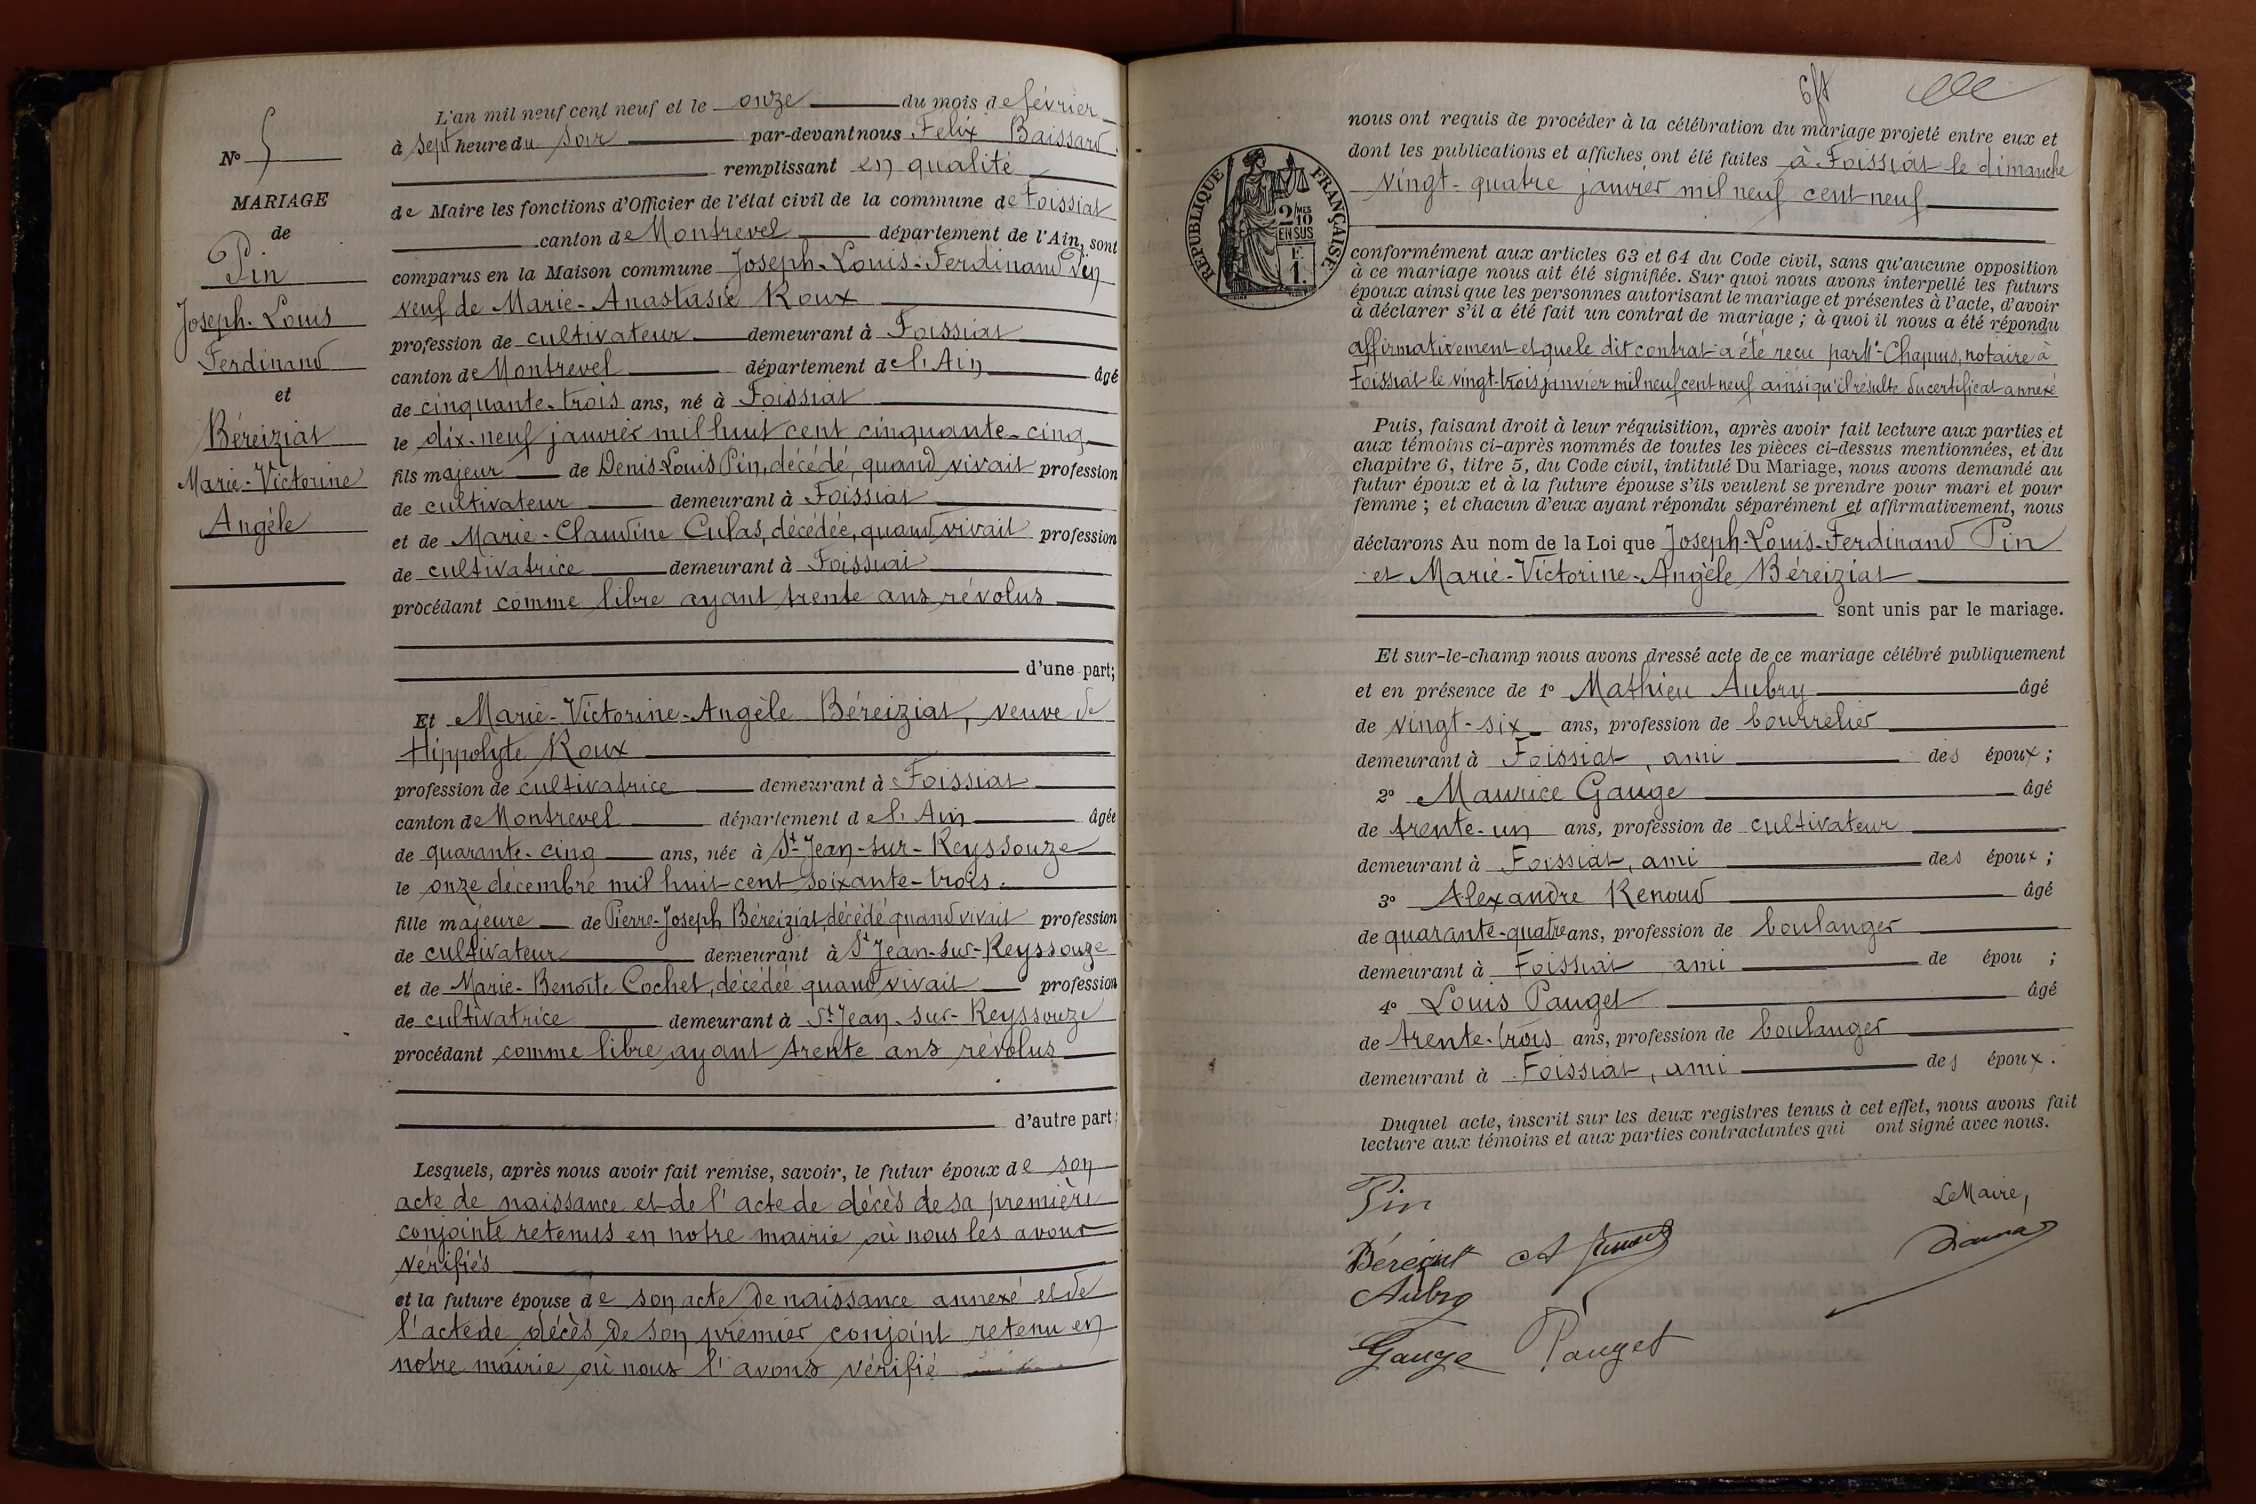 N° 5
MARIAGE
de
Pin
Joseph-Louis
Ferdinand
et
Béreiziat
Marie-Victorine
Angèle
L'an mil neuf cent neuf et le onze du mois de février
à sept heure du soir par-devant nous Félix Baissard
remplissant en qualité
de Maire les fonctions d'Officier de l'état civil de la commune de Foissiat
canton de Montrevel département de l'Ain, sont
comparus en la Maison commune Joseph-Louis-Ferdinand Pin
veuf de Marie-Anastasie Roux
profession de cultivateur demeurant à Foissiat
canton de Montrevel département de l'Ain âgé
de cinquante-trois ans, né à Foissiat
le dix-neuf janvier mil huit cent cinquante-cinq
fils majeur de Denis Louis Pin, décédé, quand vivait profession
de cultivateur demeurant à Foissiat
et de Marie-Claudine Culas, décédée, quand vivait profession
de cultivatrice demeurant à Foissiat
procédant comme libre ayant trente ans révolus
d'une part;
Et Marie-Victorine-Angèle Béreiziat, veuve de
Hippolyte Roux
profession de cultivatrice demeurant à Foissiat
canton de Montrevel département de l'Ain âgée
de quarante-cinq ans, née à St Jean-sur-Reyssouze
le onze décembre mil huit-cent soixante-trois.
fille majeure de Pierre-Joseph Béreiziat, décédé quand vivait profession
de cultivateur demeurant à St Jean-sur-Reyssouze
et de Marie-Benoîte Cochet, décédée quand vivait profession
de cultivatrice demeurant à St Jean-sur-Reyssouze
procédant comme libre ayant trente ans révolus
d'autre part;
Lesquels, après nous avoir fait remise, savoir, le futur époux de son
acte de naissance et de l'acte de décès de sa première
conjointe retenus en notre mairie où nous les avons
vérifiés
et la future épouse de son acte de naissance annexé et de
l'acte de décès de son premier conjoint retenu en
notre mairie où nous l'avons vérifié
nous ont requis de procéder à la célébration du mariage projeté entre eux et
dont les publications et affiches ont été faites à Foissiat le dimanche
vingt-quatre janvier mil neuf cent neuf
RÉPUBLIQUE FRANÇAISE
2/10 MES
EN SUS
1 F.
conformément aux articles 63 et 64 du Code civil, sans qu'aucune opposition
à ce mariage nous ait été signifiée. Sur quoi nous avons interpellé les futurs
époux ainsi que les personnes autorisant le mariage et présentes à l'acte, d'avoir
à déclarer s'il a été fait un contrat de mariage; à quoi il nous a été répondu
affirmativement et que le dit contrat a été reçu par Me Chapuis, notaire à
Foissiat le vingt-trois janvier mil neuf cent neuf ainsi qu'il résulte du certificat annexé
Puis, faisant droit à leur réquisition, après avoir fait lecture aux parties et
aux témoins ci-après nommés de toutes les pièces ci-dessus mentionnées, et du
chapitre 6, titre 5, du Code civil, intitulé Du Mariage, nous avons demandé au
futur époux et à la future épouse s'ils veulent se prendre pour mari et pour
femme; et chacun d'eux ayant répondu séparément et affirmativement, nous
déclarons Au nom de la Loi que Joseph-Louis-Ferdinand Pin
et Marie-Victorine-Angèle Béreiziat
sont unis par le mariage.
Et sur-le-champ nous avons dressé acte de ce mariage célébré publiquement
et en présence de 1° Mathieu Aubry âgé
de vingt-six ans, profession de bourrelier
demeurant à Foissiat, ami des époux;
2° Maurice Gauge âgé
de trente-un ans, profession de cultivateur
demeurant à Foissiat, ami des époux;
3° Alexandre Renoud âgé
de quarante-quatre ans, profession de boulanger
demeurant à Foissiat ami de épou ;
4° Louis Pauget âgé
de trente-trois ans, profession de boulanger
demeurant à Foissiat, ami des époux.
Duquel acte, inscrit sur les deux registres tenus à cet effet, nous avons fait
lecture aux témoins et aux parties contractantes qui ont signé avec nous.
Pin
Le Maire,
Aubry
Gauge Pauget